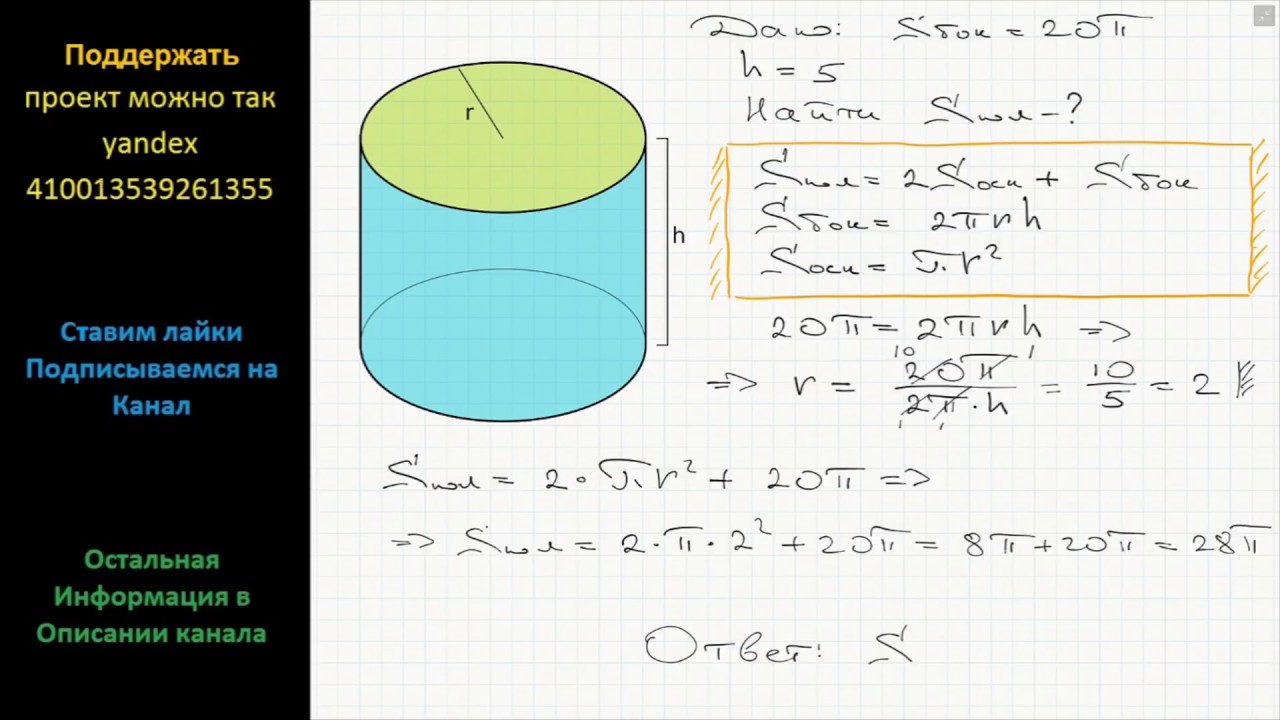 Поддержать
проект можно так
yandex
410013539261355
Ставим лайки
Подписываемся на
Канал
Остальная
Информация в
Описании канала
r
h
Дано: Sбок = 20π
h = 5
Найти Sпол - ?
Sпол = 2Sосн + Sбок
Sбок = 2πrh
Sосн = πr²
20π = 2πrh =>
=> r = 20π/2π·h = 10/5 = 2
10 1
1 1
Sпол = 2·πr² + 20π =>
=> Sпол = 2·π·2² + 20π = 8π + 20π = 28π
Ответ: S